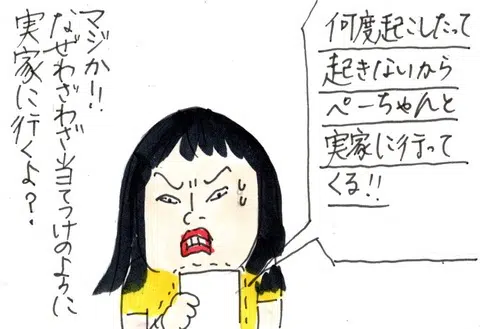 何度起こしたって
起きないから
ぺーちゃんと
実家に行って
くる!!
マジかー!!
なぜわざわざ当てつけのように
実家に行くよ?